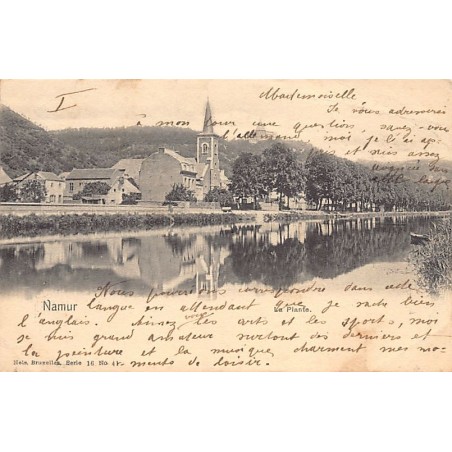 I
Mademoiselle
Je vous adresserai
à mon tour une question, savez-vous
l'allemand, moi je l'ai ap-
pris et assez
Nous pouvons correspondre dans cette
Namur
La Plante.
langue en attendant que je sache bien
l'anglais. Aimez les arts et les sports, moi
je suis grand amateur surtout des derniers et
la peinture et la musique charment mes mo-
Nels, Bruxelles, Serie 16 No.
ments de loisir.